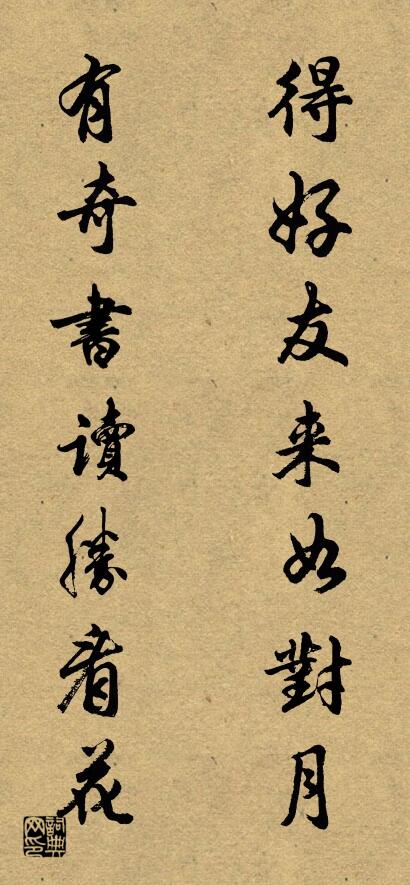 得好友来如對月
有奇書讀勝看花
詞典网印